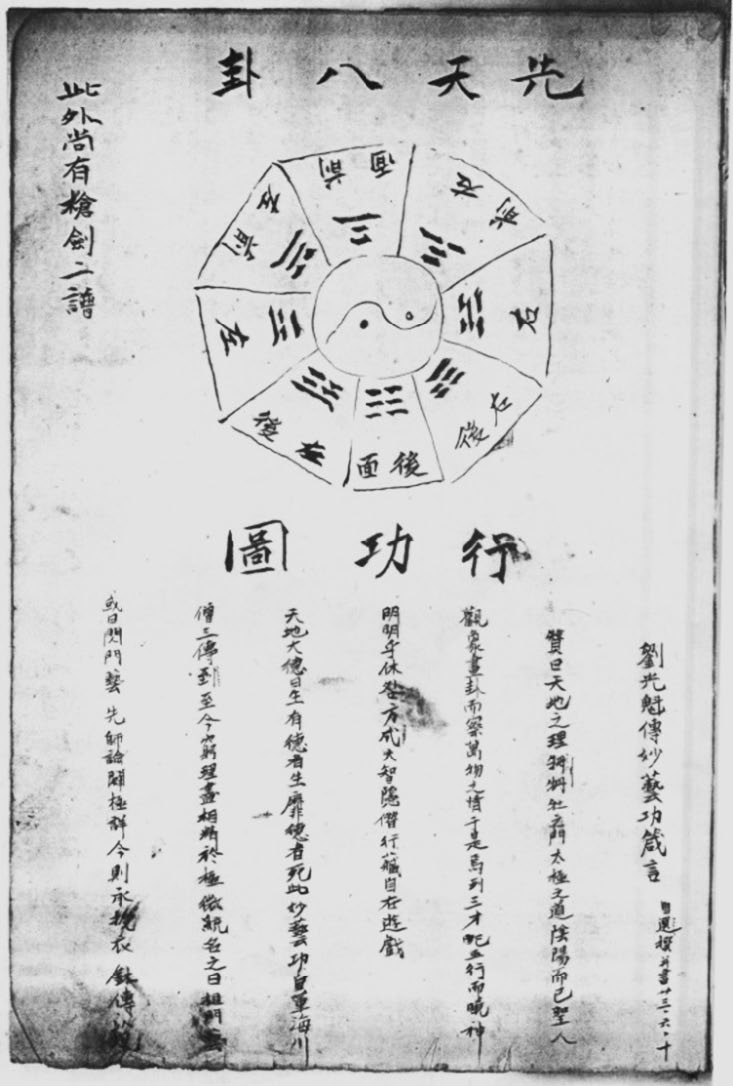 先天八卦
面前
右前
右
右後
後面
左後
左
左前
此外尚有槍劍二譜
行功圖
劉光魁傳妙藝功箴言
贊曰天地之理 玄門太極之道陰陽而已聖人
觀象畫卦而察萬物之情于是焉列三才配五行而曉神
明明乎休咎方成大智隱僧行藏自在遊戲
天地大德曰生有德者生靡德者死此妙藝功自董海川
僧三傳到至今窮理盡相精於極微統名之曰祖門藝
或曰閃門藝先師論闡極詳今則承授衣鉢傳